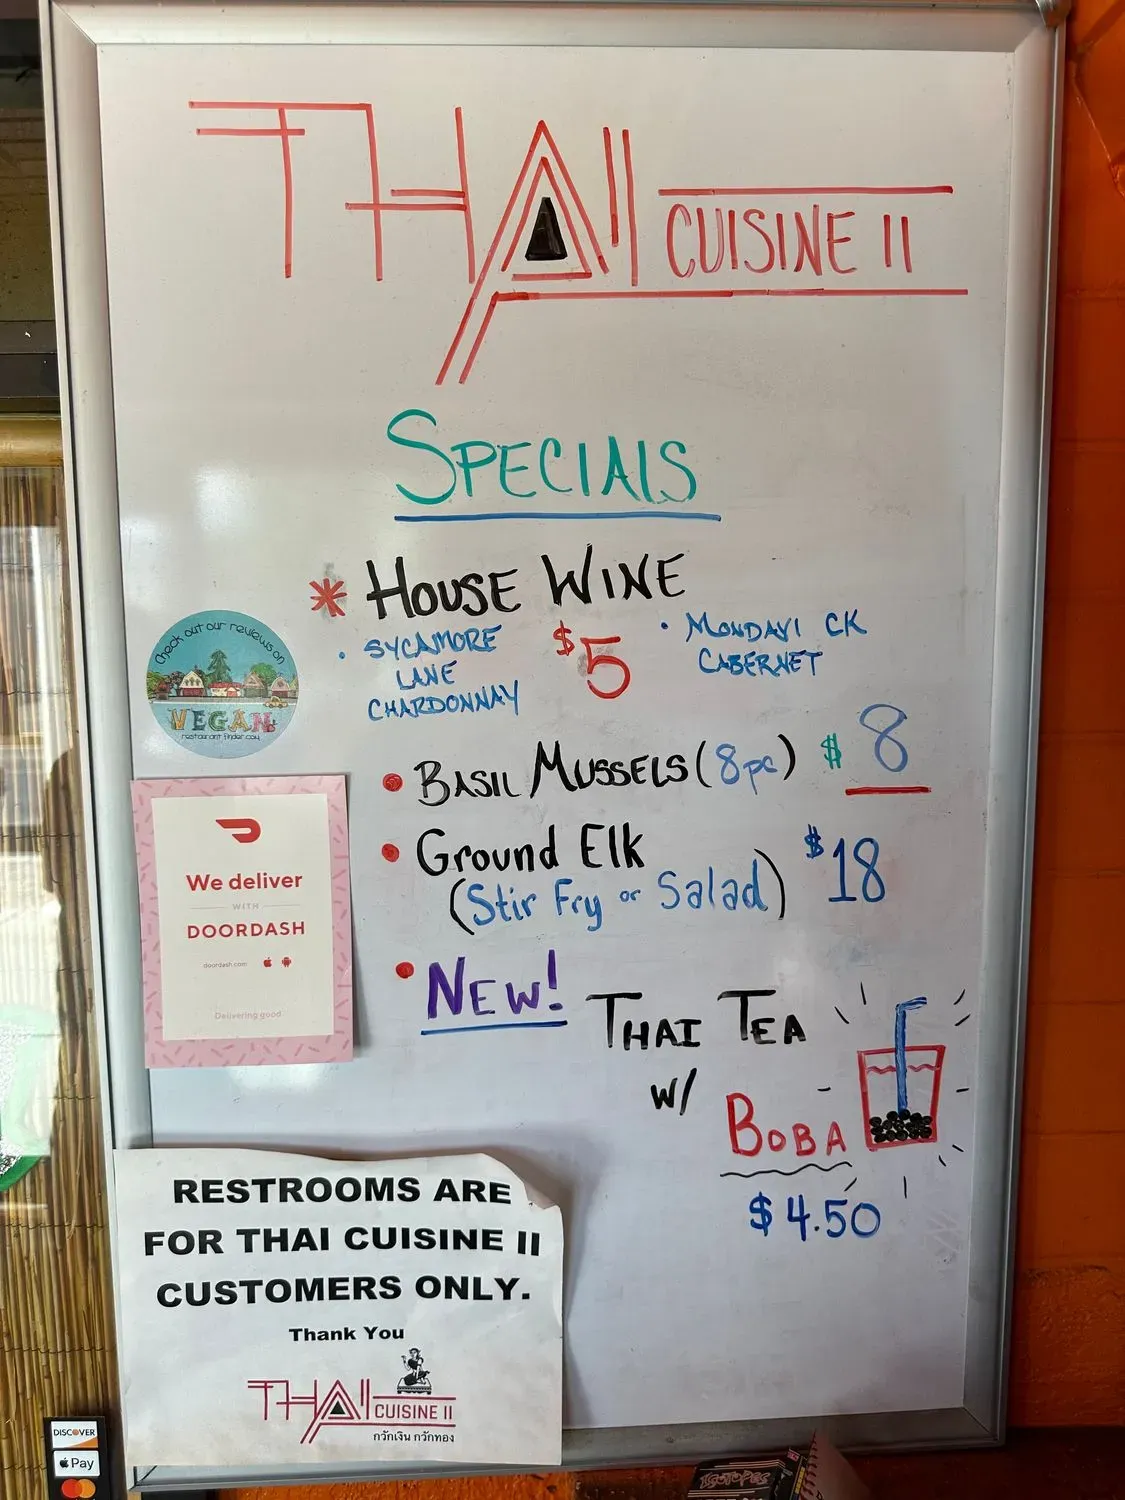 THAI CUISINE II
SPECIALS
* HOUSE WINE
• SYCAMORE
LANE
CHARDONNAY
$5
• MONDAVI CK
CABERNET
• BASIL MUSSELS (8pc) $8
• Ground Elk
(Stir Fry or Salad) $18
• NEW!
THAI TEA
W/
BOBA
$4.50
Check out our reviews on
VEGAN
restaurant finder.com
We deliver
WITH
DOORDASH
doordash.com
Delivering good
RESTROOMS ARE
FOR THAI CUISINE II
CUSTOMERS ONLY.
Thank You
THAI CUISINE II
กวักเงิน กวักทอง
DISCOVER
Pay
ISOTOPES